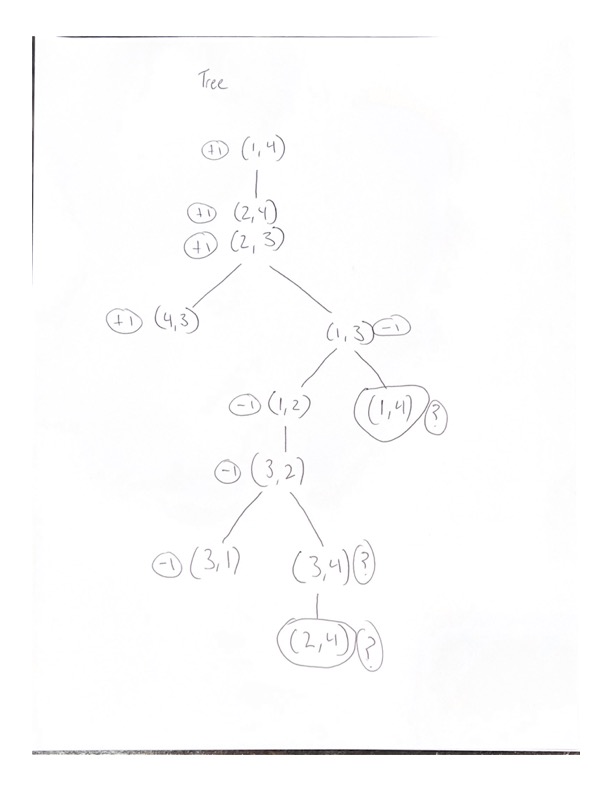 Tree
+1 (1,4)
+1 (2,4)
+1 (2,3)
+1 (4,3)
(1,3) -1
-1 (1,2)
(1,4) ?
-1 (3,2)
-1 (3,1)
(3,4) ?
(2,4) ?